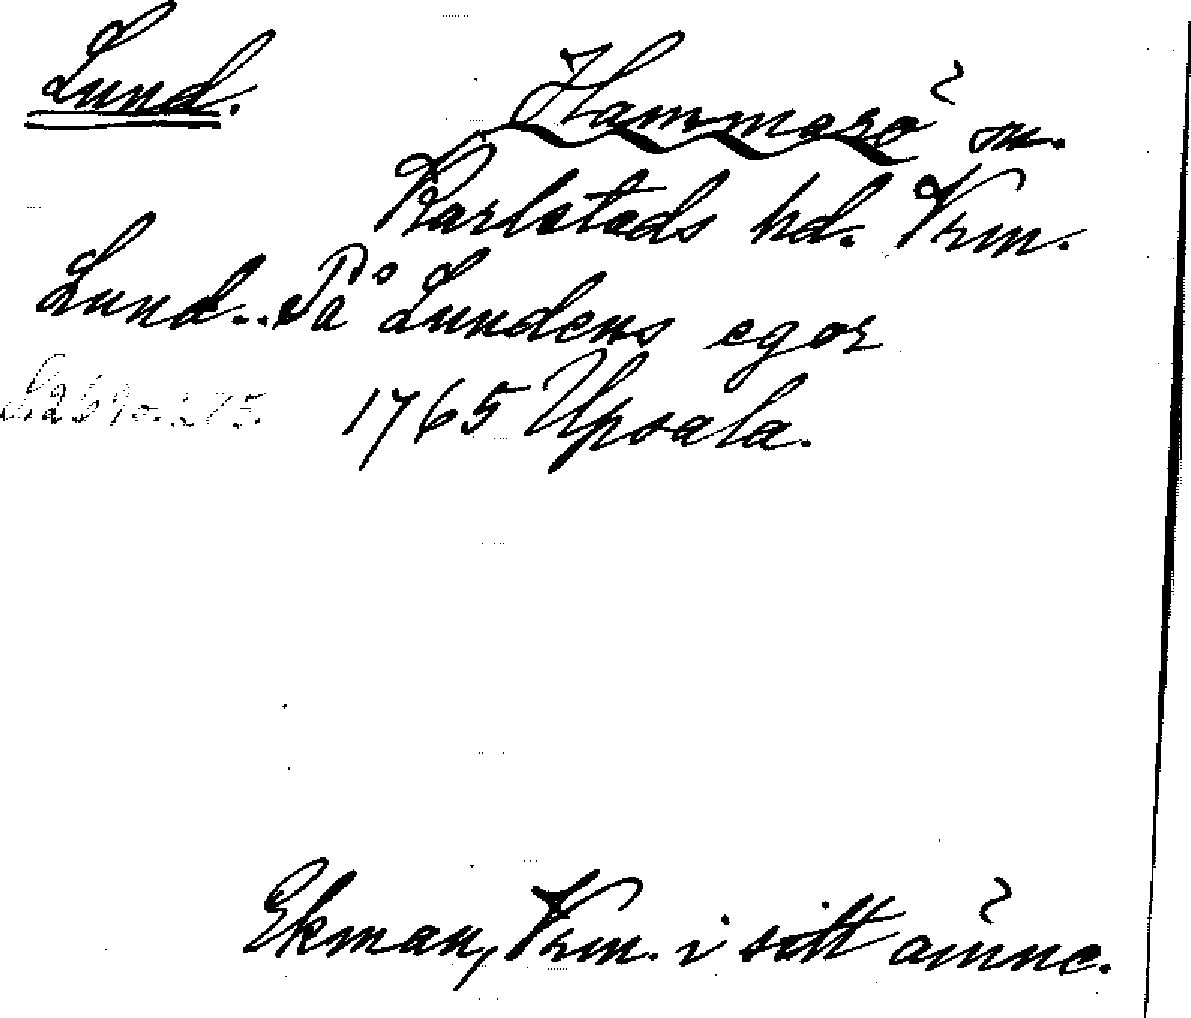 Lund. Hammarö sn.
Karlstads hd. Vrm.
Lund.. På Lundens egor
1765 Upsala.
Ekman, Vrm. i sitt ämne.